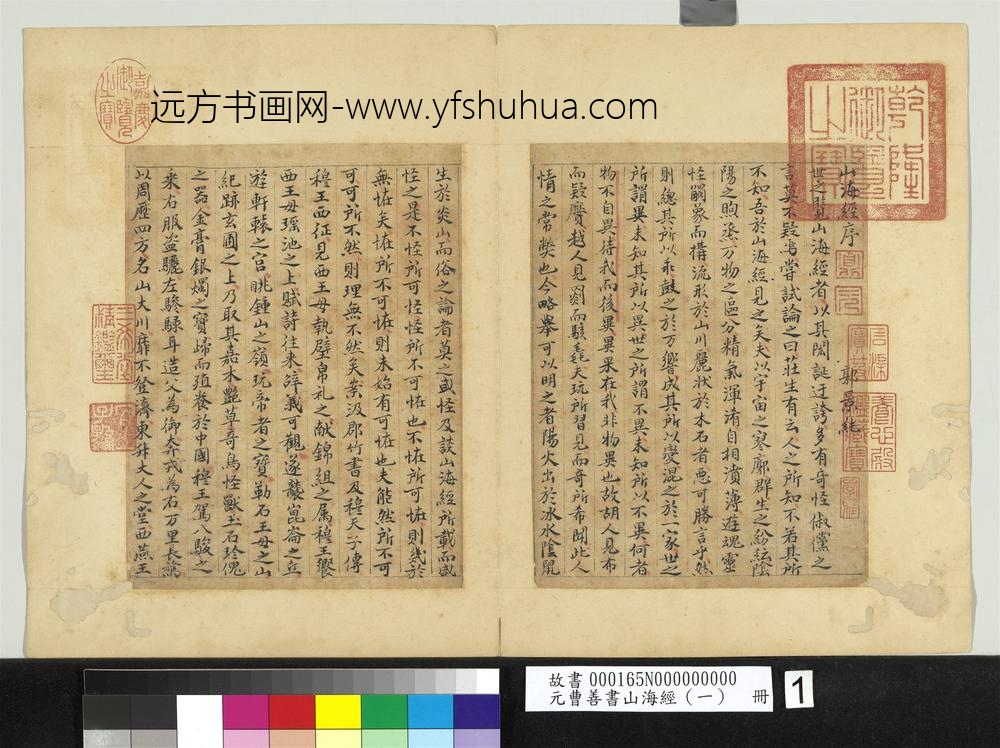 远方书画网-www.yfshuhua.com
乾隆御覽之寶
嘉慶御覽之寶
山海經序
郭景純
世之覽山海經者以其閎誕迂誇多有奇怪俶儻之
言莫不疑焉嘗試論之曰莊生有云人之所知不若其所
不知吾於山海經見之矣夫以宇宙之寥廓群生之紛紜陰
陽之煦烝万物之區分精氣渾淆自相濆薄遊魂靈
怪觸象而構流形於山川麗狀於木石者惡可勝言乎然
則總其所以乖鼓之於万響成其所以變混之於一象世之
所謂異未知其所以異世之所謂不異未知所以不異何者
物不自異待我而後異異果在我非物異也故胡人見布
而疑黂越人見罽而駭毳夫玩所習見而奇所希聞此人
情之常弊也今略舉可以明之者陽火出於冰水陰鼠
生於炎山而俗之論者莫之或怪及談山海經所載而咸
怪之是不怪所可怪怪所不可怪也不怪所可怪則幾於
無怪矣怪所不可怪則未始有可怪也夫能然所不可
可可所不然則理無不然矣案汲郡竹書及穆天子傳
穆王西征見西王母執璧帛礼之献錦組之属穆王饗
西王母瑶池之上賦詩往来辝義可觀遂襲崑崙之丘
遊軒轅之宮眺鍾山之嶺玩帝者之寶勒石王母之山
紀跡玄圃之上乃取其嘉木艶草奇鳥怪獸玉石珍瑰
之器金膏銀燭之寶歸而殖養於中國穆王駕八駿之
来右服盗驪左驂騄耳造父為御奔戎為右万里長騖
以周歷四方名山大川靡不登濟東升大人之堂西燕王
故書 000165N000000000
元曹善書山海經（一） 冊
1